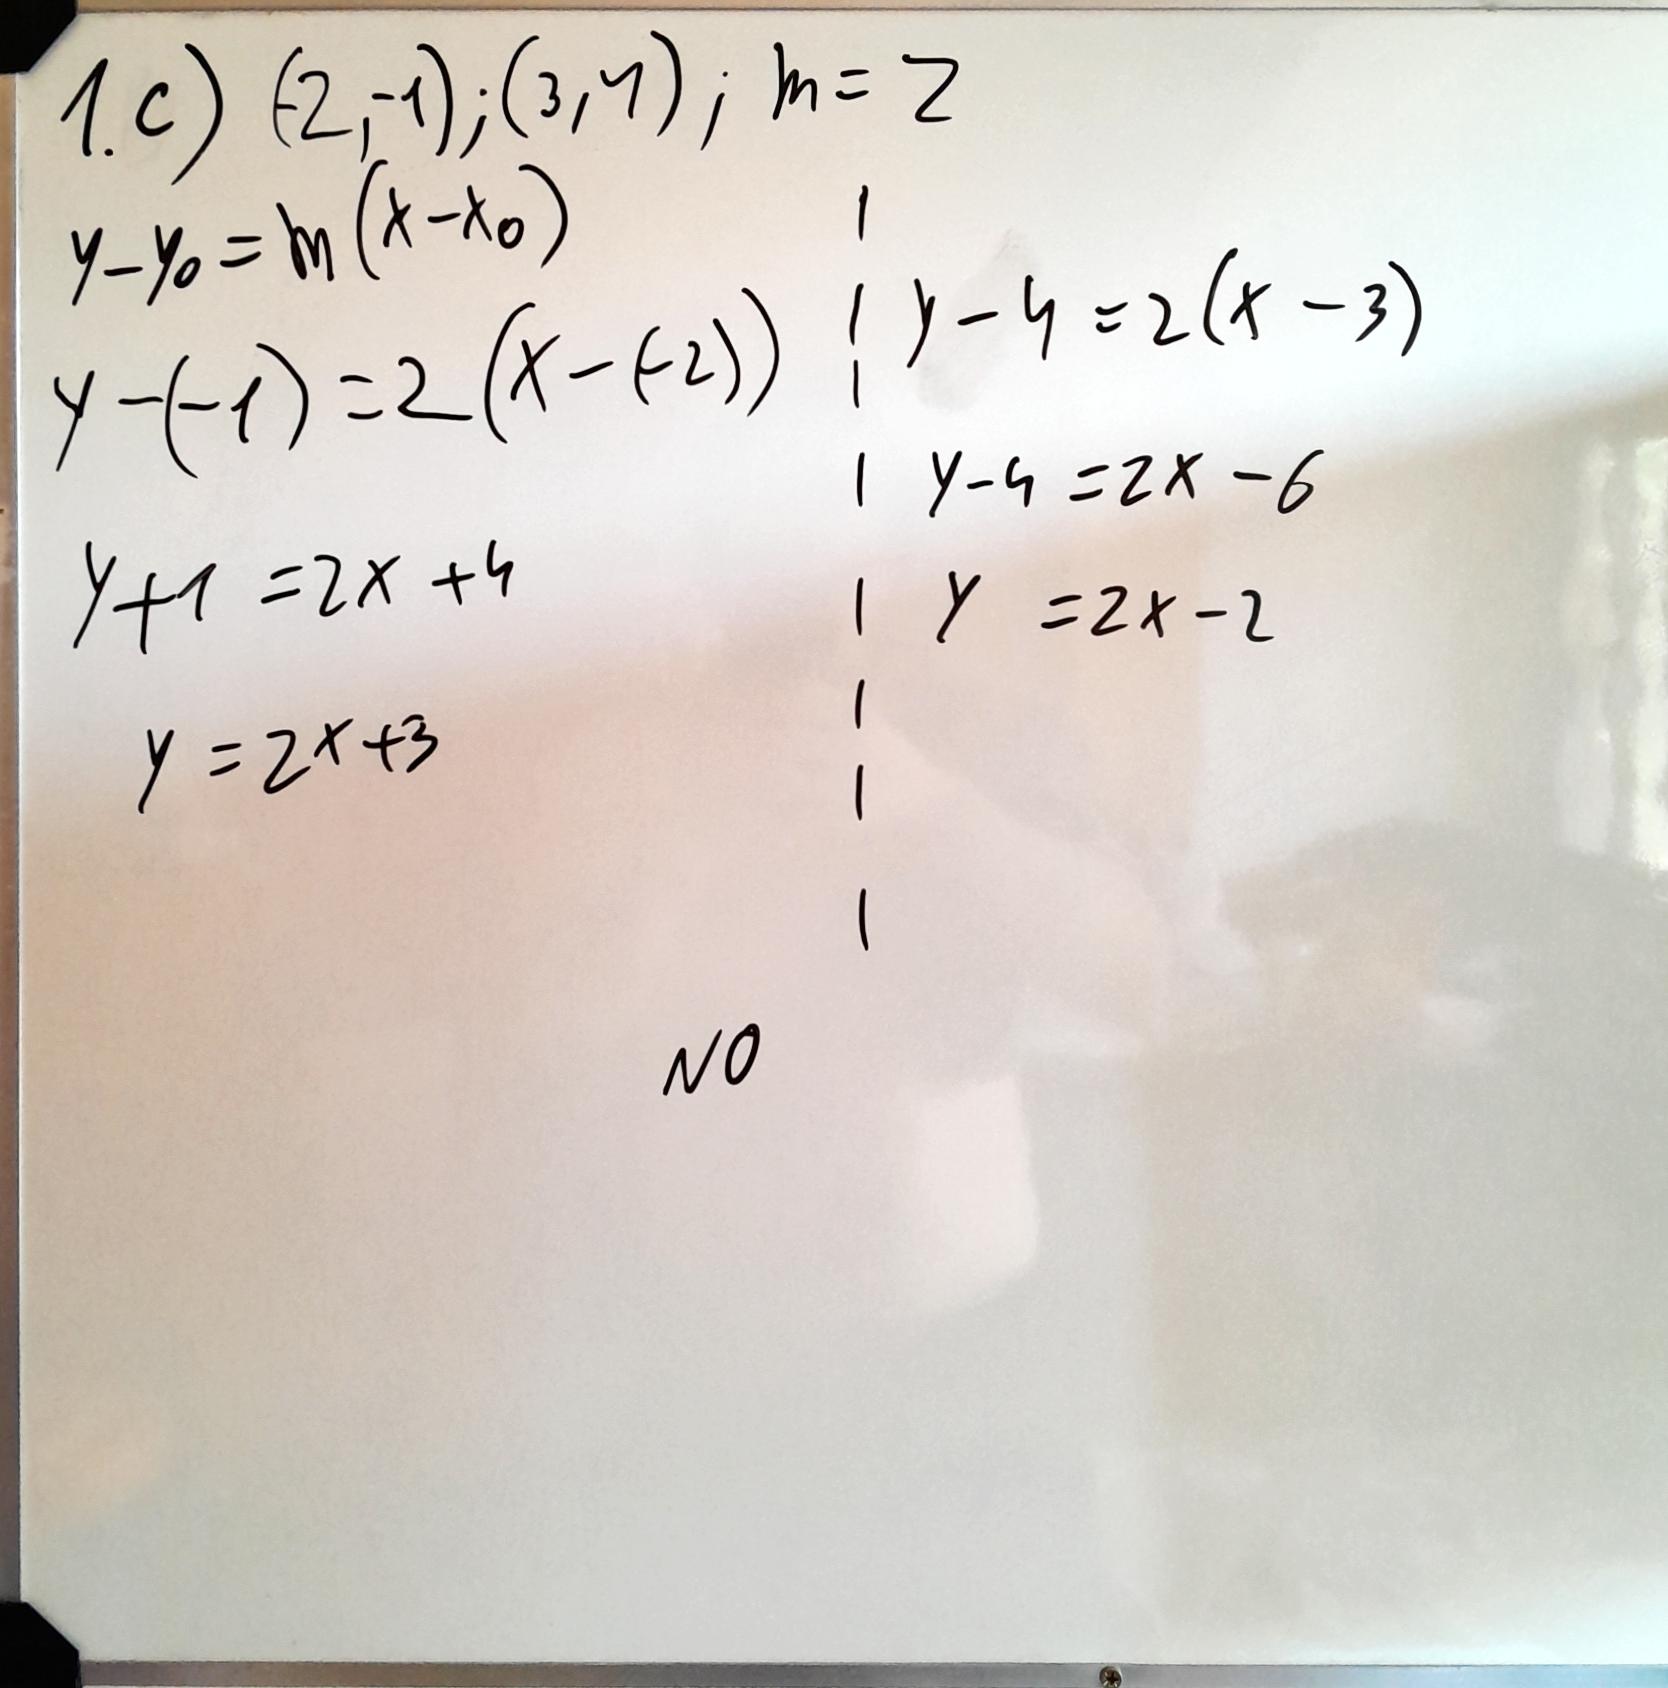 1.c) (-2,-1);(3,4); m=2
y-y₀=m(x-x₀)
y-(-1)=2(x-(-2))
y+1=2x+4
y=2x+3
y-4=2(x-3)
y-4=2x-6
y=2x-2
NO